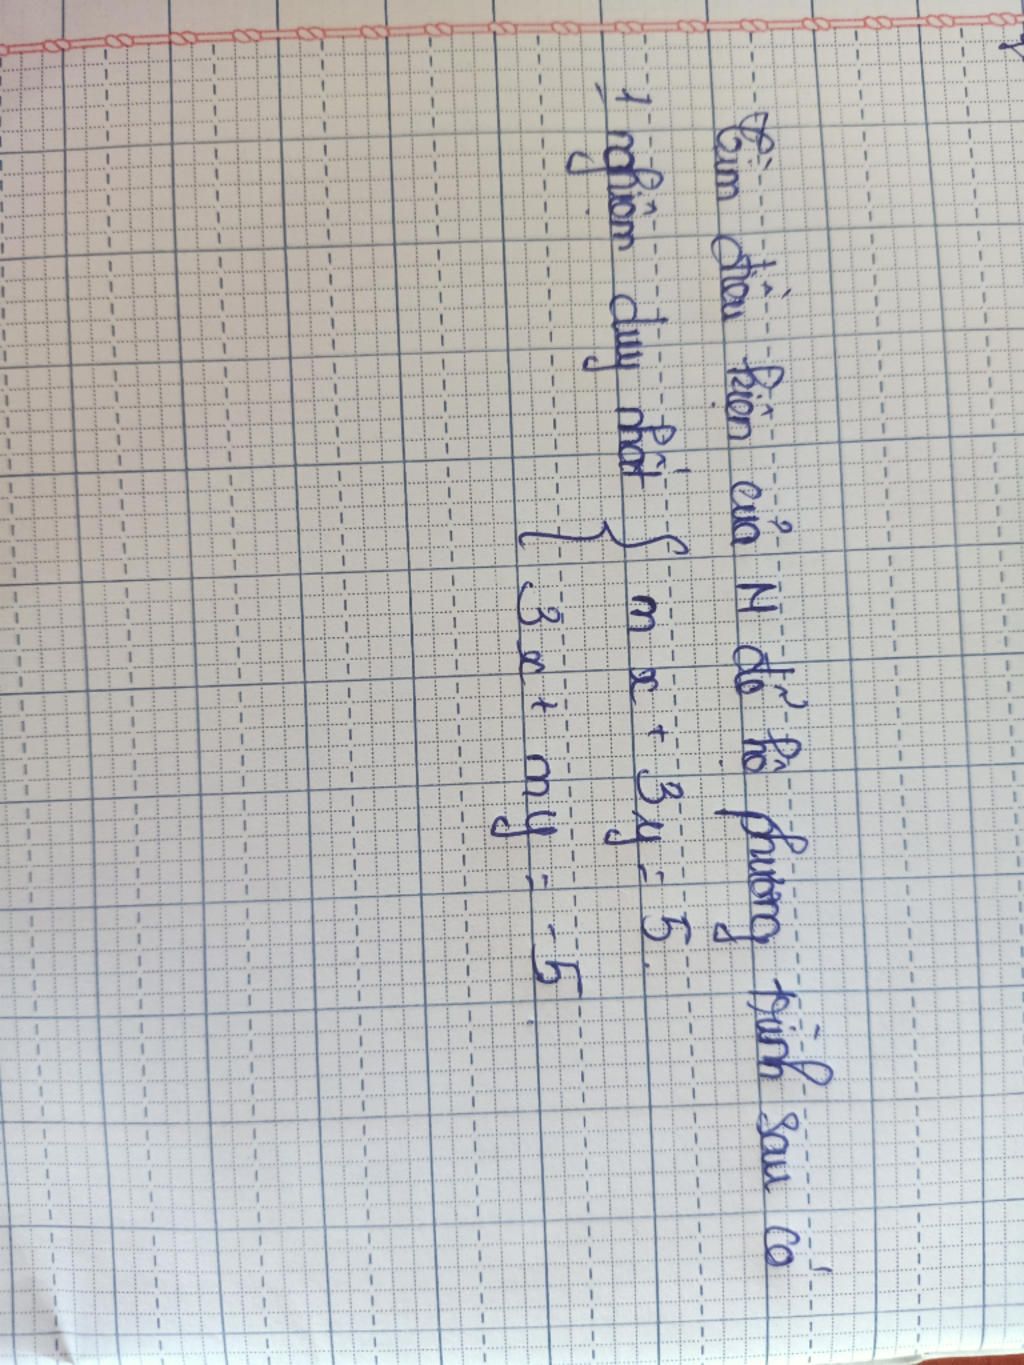 Tìm điều kiện của M để hệ phương trình sau có
1 nghiệm duy nhất { mx + 3y = 5.
{ 3x + my = -5